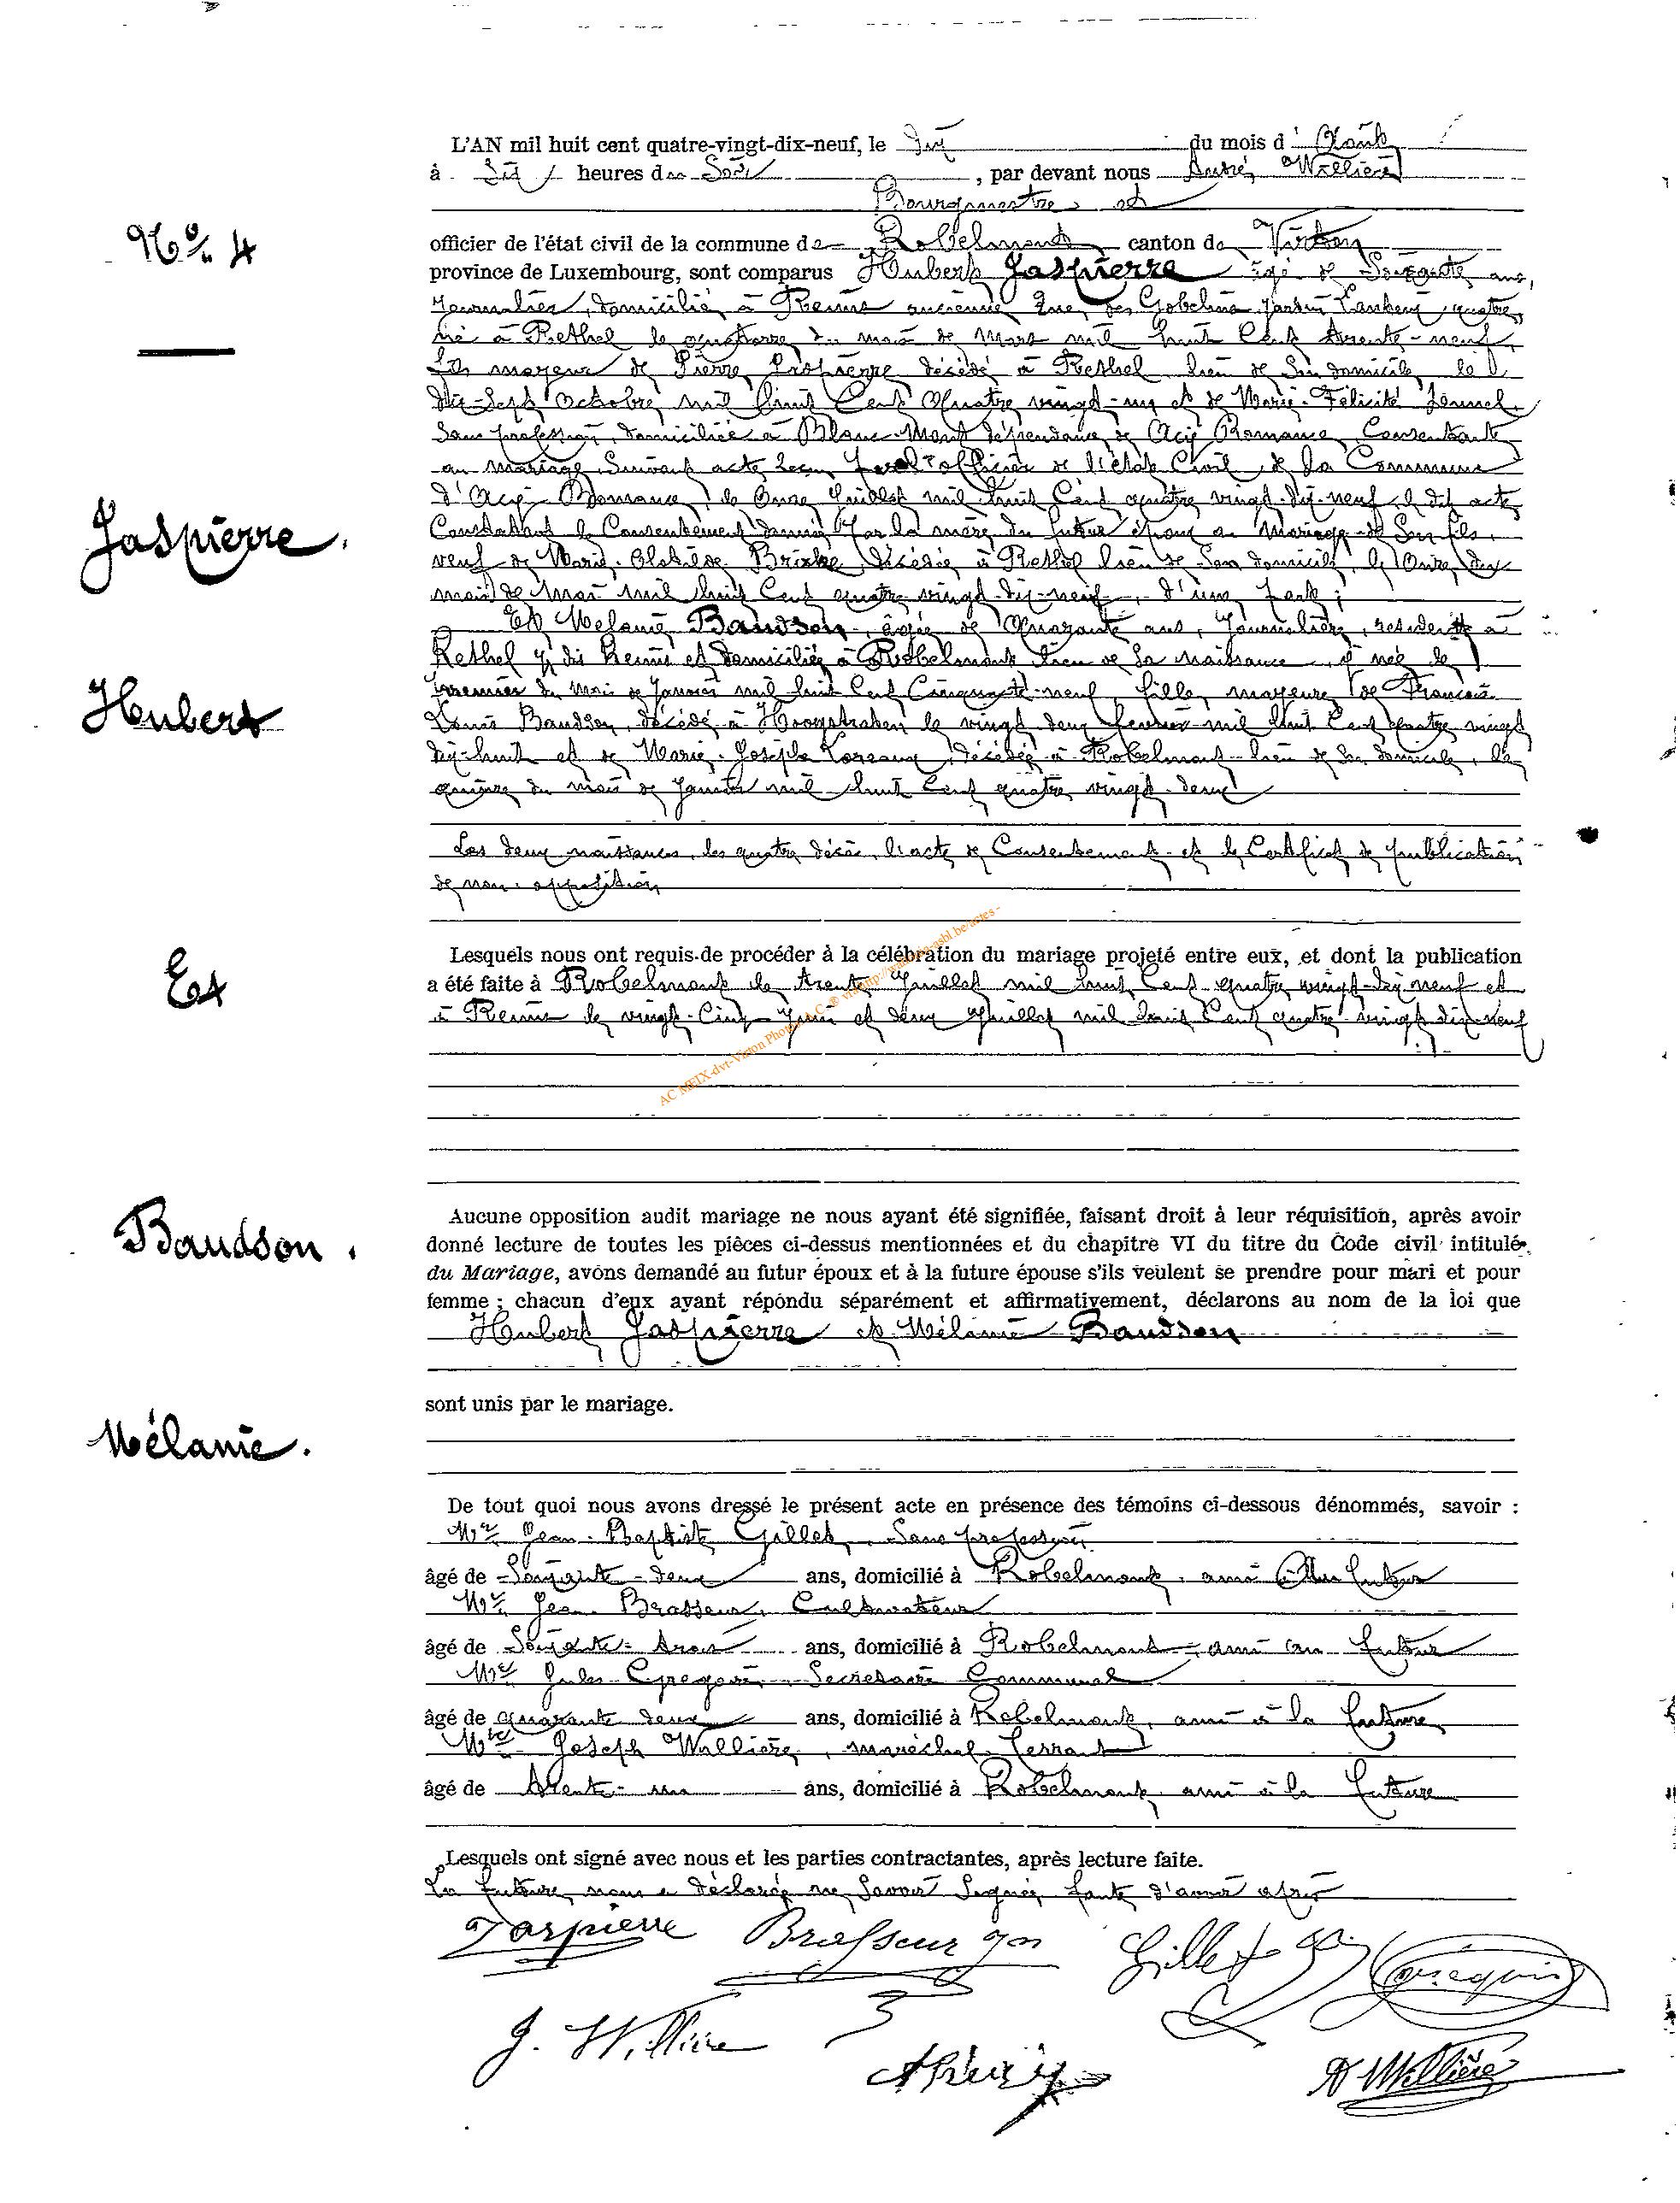 L'AN mil huit cent quatre-vingt-dix-neuf, le dix du mois d'Août
à Six heures du Soir, par devant nous André Willière
Bourgmestre et
N° 4
officier de l'état civil de la commune de Robelmont canton de Virton
province de Luxembourg, sont comparus Hubert Jaspierre âgé de Soixante ans,
Journalier, domicilié à Reims ancienne Rue des Gobelins Jardin quatre,
né à Rethel le quatorze du mois de Mars mil huit Cent trente-neuf,
fils majeur de Pierre Jaspierre décédé à Rethel lieu de Son domicile, le
dix-Sept Octobre mil huit Cent Quatre vingt-un et de Marie-Félicité
Sans profession, domiciliée à Blanc-Mont dépendance de Acy Romance, Consentante
au mariage Suivant acte reçu par l'officier de l'état Civil de la Commune
d'Acy Romance, le Onze Juillet mil huit Cent quatre vingt-dix-neuf, le dit acte
Constatant le Consentement donné par la mère du futur époux au Mariage de Son fils,
Jaspierre.
veuf de Marie-Clotilde décédée à Rethel lieu de Son domicile, le Onze du
mois de Mai mil huit Cent quatre vingt-dix-neuf, d'une part;
Et Mélanie Baudson, âgée de Quarante ans, Journalière, résidente à
Rethel puis Reims et domiciliée à Robelmont lieu de Sa naissance, y née le
Hubert
premier du Mois de Janvier mil huit Cent Cinquante-neuf, fille majeure de François
Louis Baudson, décédé à Hoogstraten le vingt deux février mil huit Cent quatre vingt
dix-huit et de Marie-Josèphe décédée à Robelmont lieu de Son domicile, le
quinze du mois de Janvier mil huit Cent quatre vingt-deux
Les deux naissances, les quatre décès, l'acte de Consentement et le Certificat de publication
de non-opposition
Et
Lesquels nous ont requis de procéder à la célébration du mariage projeté entre eux, et dont la publication
a été faite à Robelmont le trente Juillet mil huit Cent quatre vingt-dix neuf et
à Reims le vingt-Cinq Juin et deux Juillet mil huit Cent quatre vingt dix-neuf
AC MEIX-dvt-Virton
Baudson.
Aucune opposition audit mariage ne nous ayant été signifiée, faisant droit à leur réquisition, après avoir
donné lecture de toutes les pièces ci-dessus mentionnées et du chapitre VI du titre du Code civil intitulé
du Mariage, avons demandé au futur époux et à la future épouse s'ils veulent se prendre pour mari et pour
femme ; chacun d'eux ayant répondu séparément et affirmativement, déclarons au nom de la loi que
Hubert Jaspierre et Mélanie Baudson
sont unis par le mariage.
Mélanie.
De tout quoi nous avons dressé le présent acte en présence des témoins ci-dessous dénommés, savoir :
Mr Jean-Baptiste Gillet, Sans profession
âgé de Soixante-deux ans, domicilié à Robelmont, ami au futur
Mr Jean Brasseur, Cultivateur
âgé de Soixante-trois ans, domicilié à Robelmont, ami au futur
Mr Jules Grégoire, Secrétaire Communal
âgé de quarante deux ans, domicilié à Robelmont, ami à la future
Mr Joseph Willière, maréchal-ferrant
âgé de trente-un ans, domicilié à Robelmont, ami à la future
Lesquels ont signé avec nous et les parties contractantes, après lecture faite.
La future nous a déclaré ne Savoir Signer, faute d'avoir appris
Jaspierre Brasseur Jn Gillet
J. Willière
A Willière